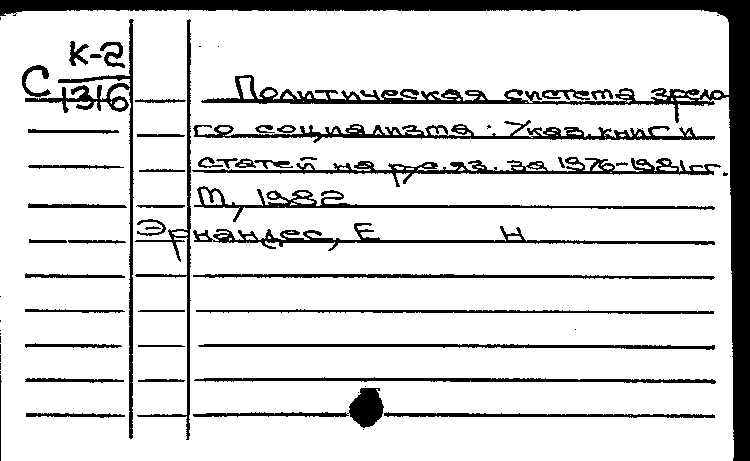 К-2
С 1316
Политическая система зрело
го социализма: Указ. книг и
статей на рус. яз. за 1976-1981 гг.
М., 1982
Эрнандес, Е Н